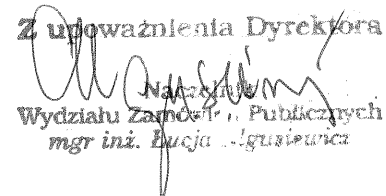 Z upoważnienia Dyrektora
Naczelnik
Wydziału Zamówień Publicznych
mgr inż. Łucja